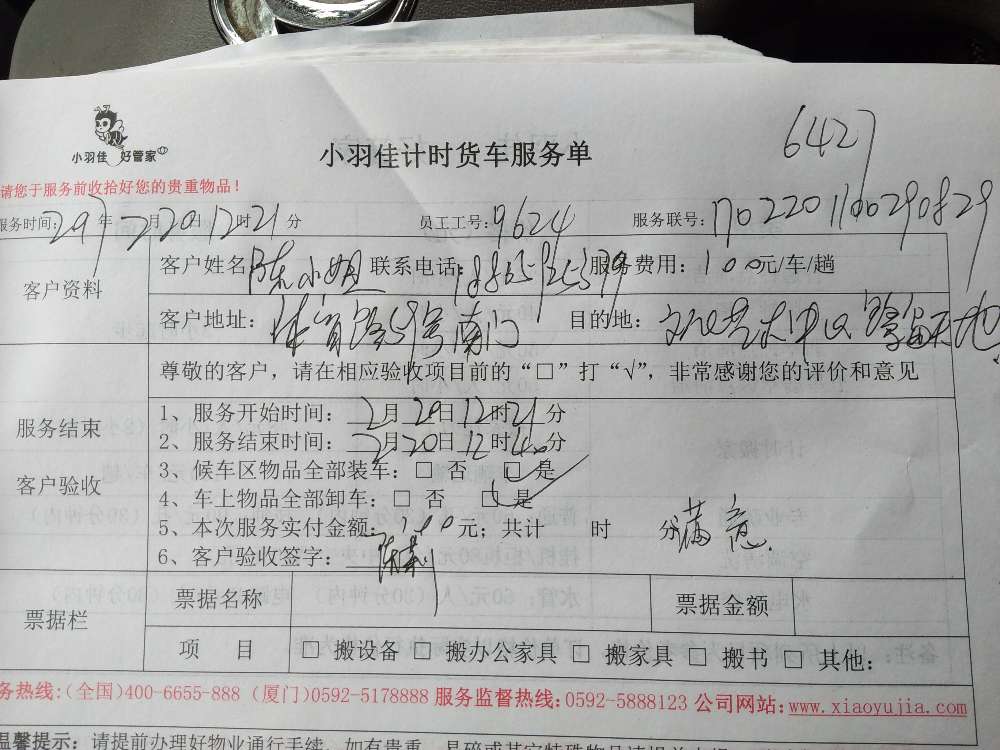 6427
小羽佳 好管家
小羽佳计时货车服务单
请您于服务前收拾好您的贵重物品！
服务时间: 297年 2月20日12时21分 员工工号: 9624 服务联号: 1702201100290829
客户资料
客户姓名 陈小姐 联系电话: 服务费用: 100元/车/趟
客户地址: 体育路 号南门 目的地: 文化艺术中心
尊敬的客户，请在相应验收项目前的“□”打“√”，非常感谢您的评价和意见
服务结束
客户验收
1、服务开始时间: 2月20日12时21分
2、服务结束时间: 2月20日12时40分
3、候车区物品全部装车: □ 否 □ 是
4、车上物品全部卸车: □ 否 □ 是
5、本次服务实付金额: 100元; 共计 时 分 满意.
6、客户验收签字:
票据栏
票据名称 票据金额
项 目 □ 搬设备 □ 搬办公家具 □ 搬家具 □ 搬书 □ 其他:
务热线:(全国)400-6655-888 (厦门)0592-5178888 服务监督热线: 0592-5888123 公司网站: www.xiaoyujia.com
温馨提示: 请提前办理好物业通行手续，如有贵重、易碎或其它特殊物品请提前